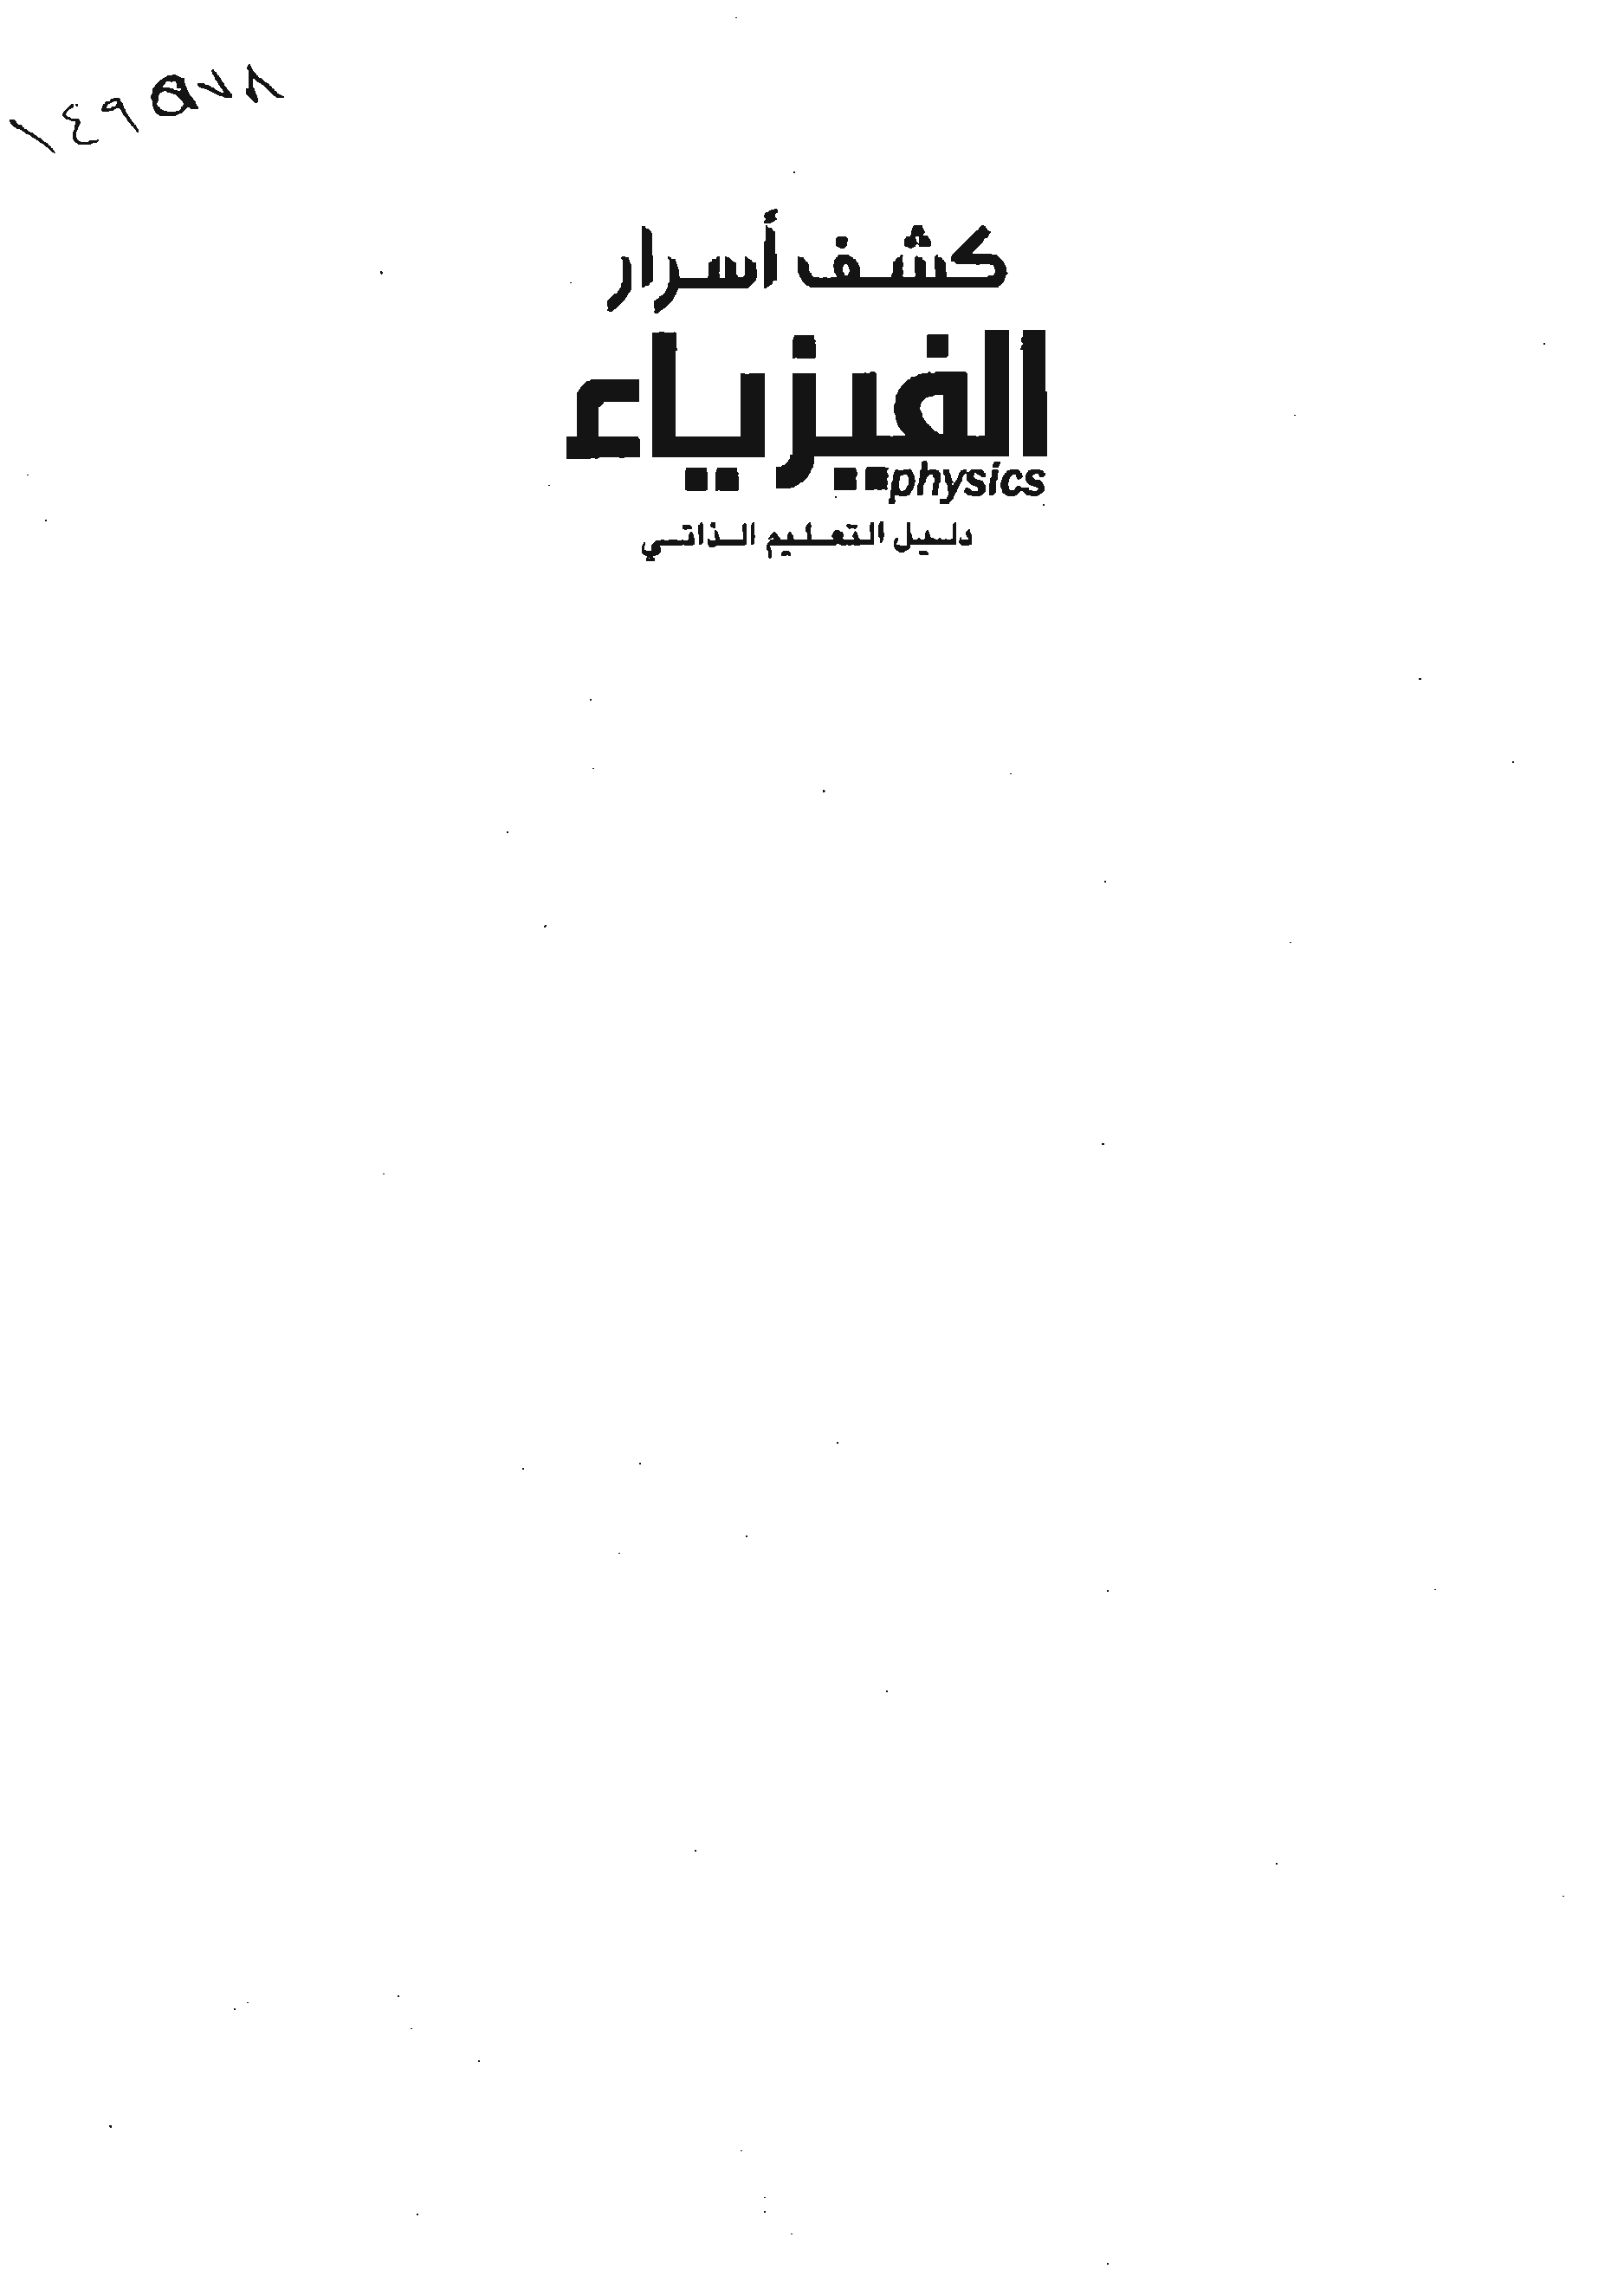 ١٤٩٥٧٨
كشف أسرار
الفيزياء
physics
دليل التعليم الذاتي